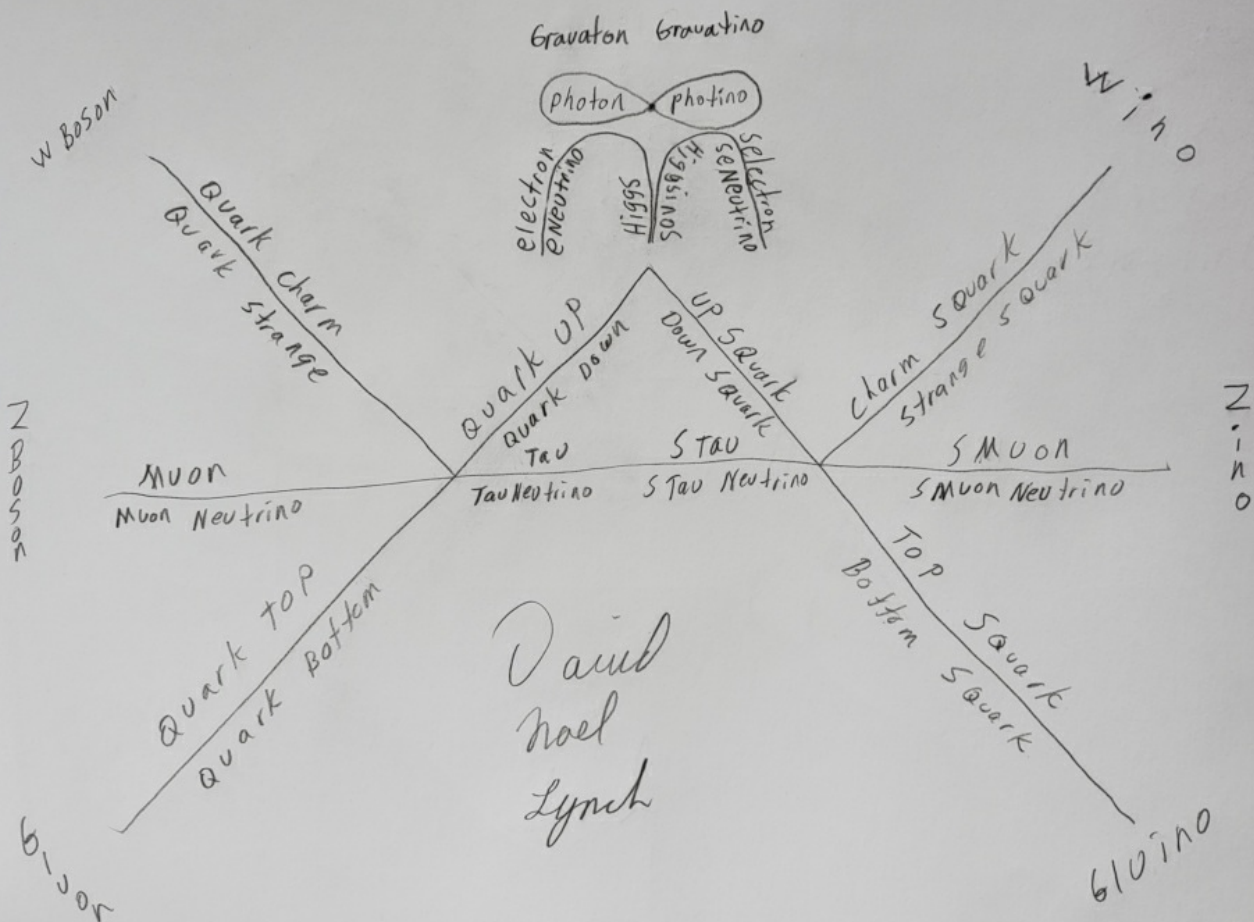 Gravaton Gravatino
photon photino
W Boson
Wino
electron
eNeutrino
Higgs
Higgsinos
selectron
seNeutrino
Quark Charm
Quark Strange
Quark UP
Quark Down
UP SQuark
Down SQuark
Charm SQuark
Strange SQuark
Z Boson
Muon
Muon Neutrino
Tau
Tau Neutrino
S Tau
S Tau Neutrino
S Muon
S Muon Neutrino
Zino
Quark TOP
Quark Bottom
TOP SQuark
Bottom SQuark
David
Noel
Lynch
Gluon
Gluino